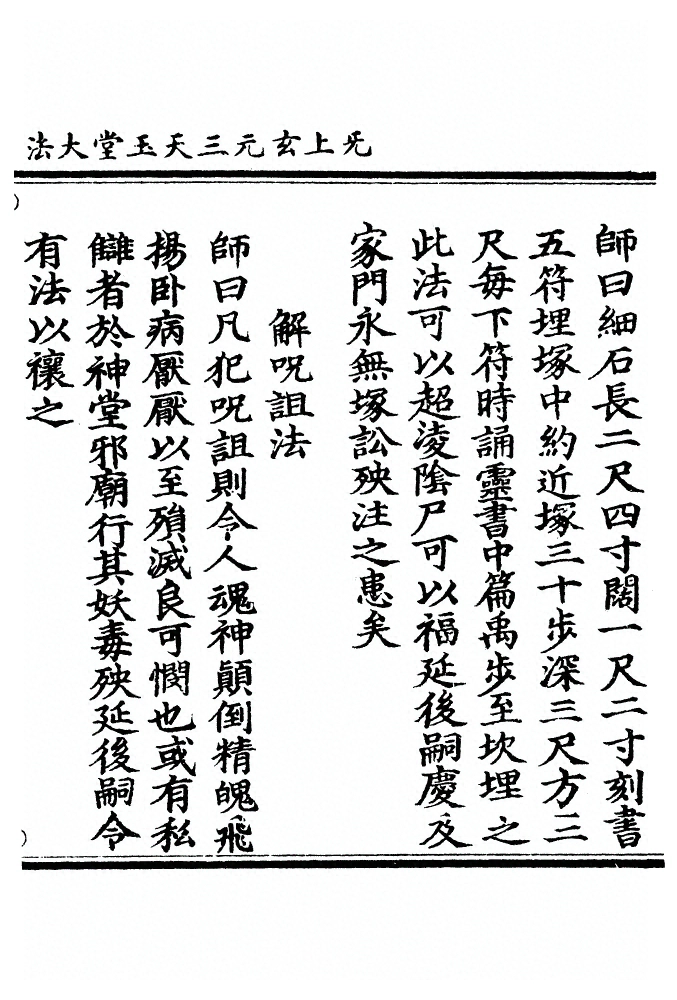 无上玄元三天玉堂大法
師曰細石長二尺四寸闊一尺二寸刻書
五符埋塚中約近塚三十步深三尺方三
尺每下符時誦靈書中篇禹步至坎埋之
此法可以超淩陰尸可以福延後嗣慶及
家門永無塚訟殃注之患矣
解呪詛法
師曰凡犯呪詛則令人魂神顛倒精魄飛
揚卧病厭厭以至殞滅良可憫也或有私
讎者於神堂邪廟行其妖毒殃延後嗣令
有法以禳之